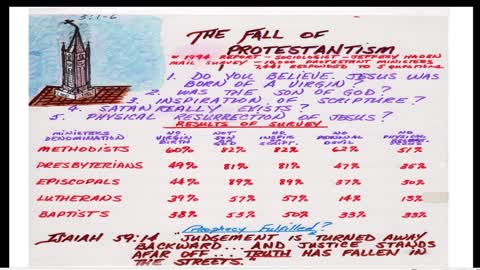 5:1-6
THE FALL OF
PROTESTANTISM
* 1994 REPORT - SOCIOLOGIST - JEFFERY HADEN
MAIL SURVEY - 10,000 PROTESTANT MINISTERS
7,441 RESPONDED TO 5 QUESTIONS.
1. DO YOU BELIEVE JESUS WAS
BORN OF A VIRGIN?
2. WAS THE SON OF GOD?
3. INSPIRATION OF SCRIPTURE?
4. SATAN REALLY EXISTS?
5. PHYSICAL RESURRECTION OF JESUS?
RESULTS OF SURVEY
MINISTERS DENOMINATION NO VIRGIN BIRTH NOT SON GOD NO INSPIR SCRIPT. NO PERSONAL DEVIL NO PHYSICAL
METHODISTS 60% 82% 82% 62% 51%
PRESBYTERIANS 49% 81% 81% 47% 35%
EPISCOPALS 44% 89% 89% 37% 30%
LUTHERANS 39% 57% 57% 14% 13%
BAPTISTS 38% 55% 50% 33% 33%
Prophecy Fulfilled?
ISAIAH 59:14 "JUDGEMENT IS TURNED AWAY
BACKWARD... AND JUSTICE STANDS
AFAR OFF... TRUTH HAS FALLEN IN
THE STREETS."